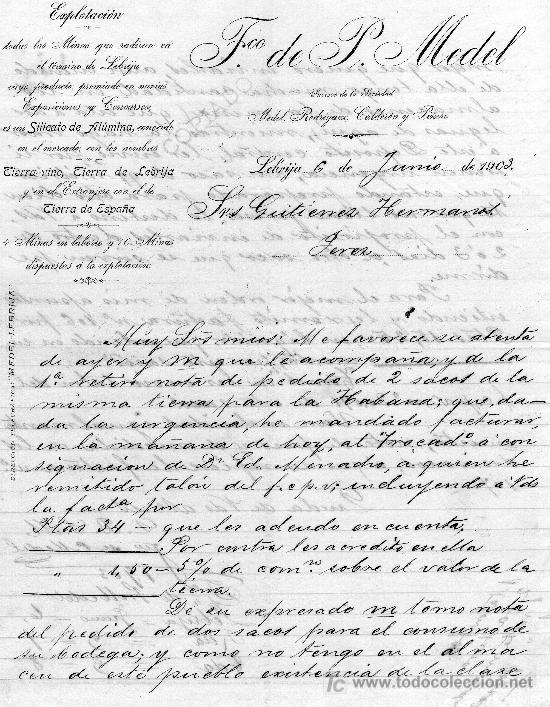 Explotación
todas las Minas que radican en
el término de Lebrija
cuyo producto, premiado en varias
Exposiciones y Concursos,
es un Silicato de Alúmina, conocido
en el mercado, con los nombres
Tierra-vino, Tierra de Lebrija
y en el Extranjero con el de
Tierra de España
4 Minas en laboreo y 10 Minas
dispuestos á la explotación
F.co de P. Medel
Sucesor de la Sociedad
Medel, Rodríguez, Calderón y
Lebrija 6 de Junio de 1903.
Srs Gutierrez Hermanos
Jerez
MEDEL LEBRIJA
Muy Srs mios: Me favorece su atenta
de ayer y m que le acompaña, y de la
1ª retiro nota de pedido de 2 sacos de la
misma tierra para la Habana; que, da-
da la urgencia, he mandado facturar,
en la mañana de hoy, al Trocadº á con
signacion de Dn Ed. Minadro, á quien he
remitido talón del f.c.p.v; incluyendo á Vds
la factª por
Ptas 34 — que les adeudo en cuenta,
Por contra les acredito en ella
" 1,50 - 5% de comon sobre el valor de la
tierra.
De su expresado m tomo nota
del pedido de dos sacos para el consumo de
su bodega; y como no tengo en el alma
cen de este pueblo existencia de la clase
tc www.todocoleccion.net